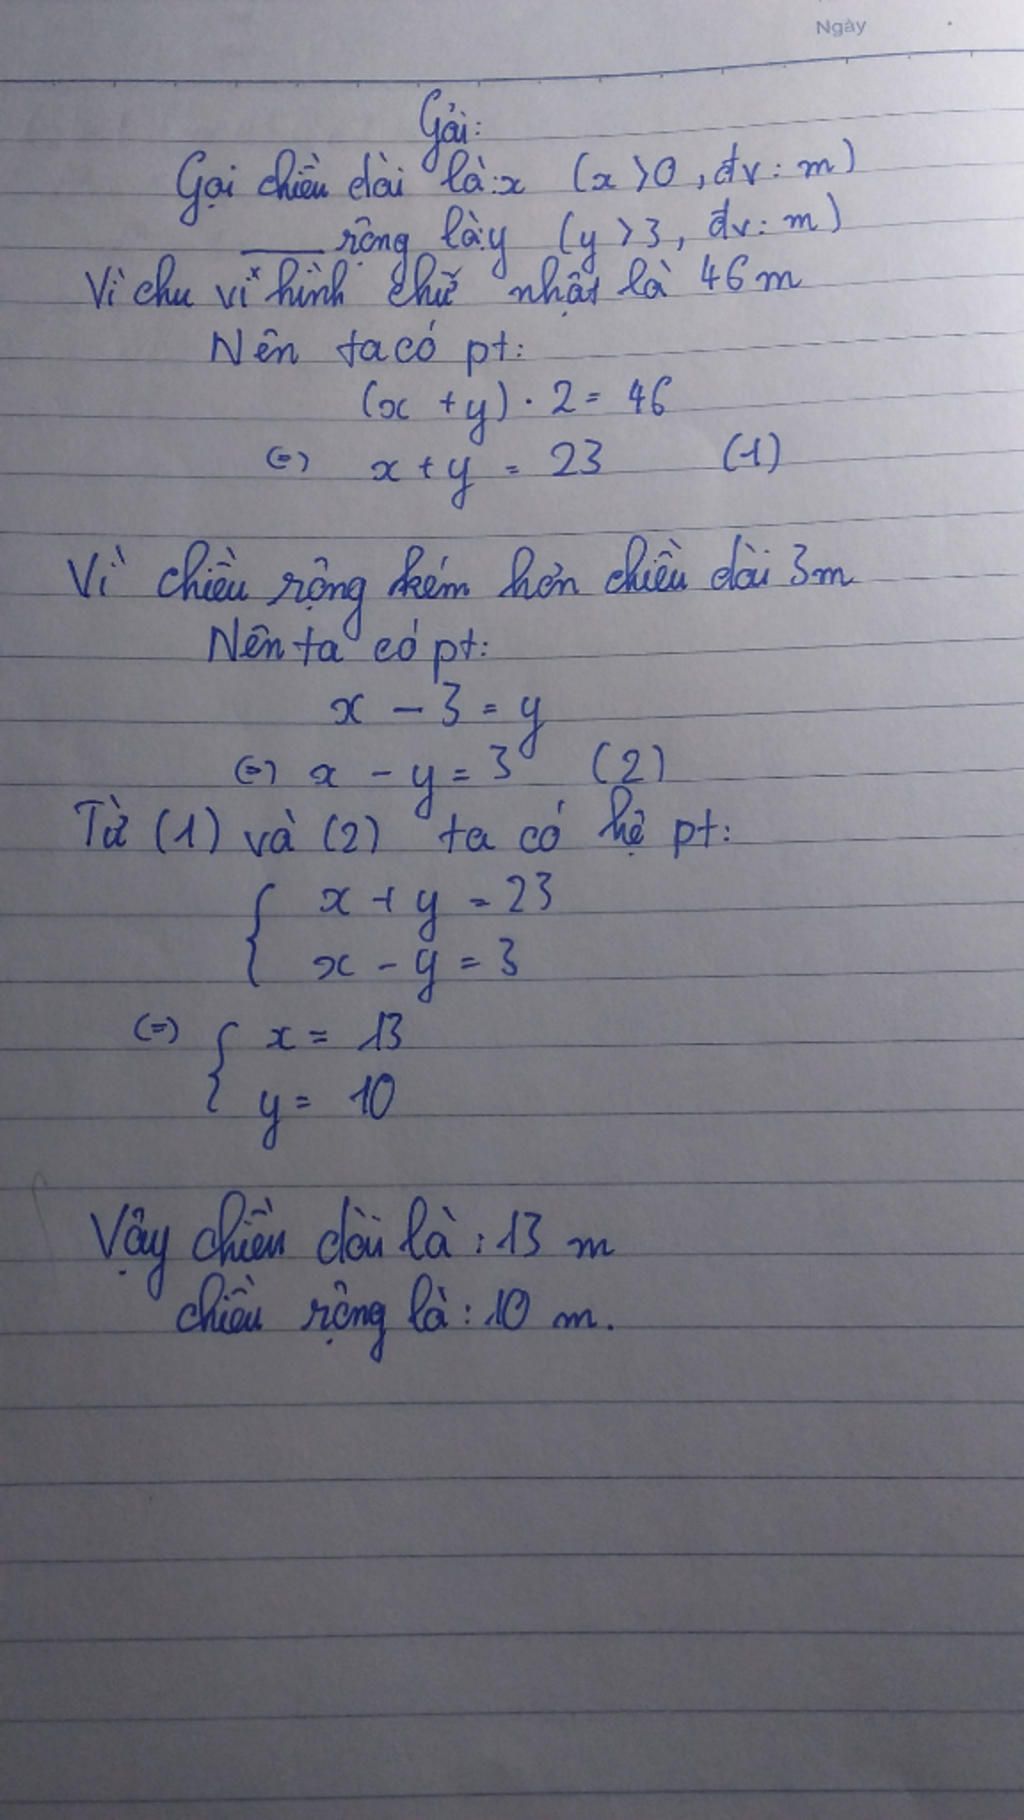 Ngày
Gải:
Gọi chiều dài là: x (x > 0, đv: m)
____ rộng là: y (y > 3, đv: m)
Vì chu vi hình chữ nhật là 46 m
Nên ta có pt:
(x + y) . 2 = 46
(=) x + y = 23 (1)
Vì chiều rộng kém hơn chiều dài 3m
Nên ta có pt:
x - 3 = y
(=) x - y = 3 (2)
Từ (1) và (2) ta có hệ pt:
{ x + y = 23
x - y = 3
(=) { x = 13
y = 10
Vậy chiều dài là: 13 m
chiều rộng là: 10 m.